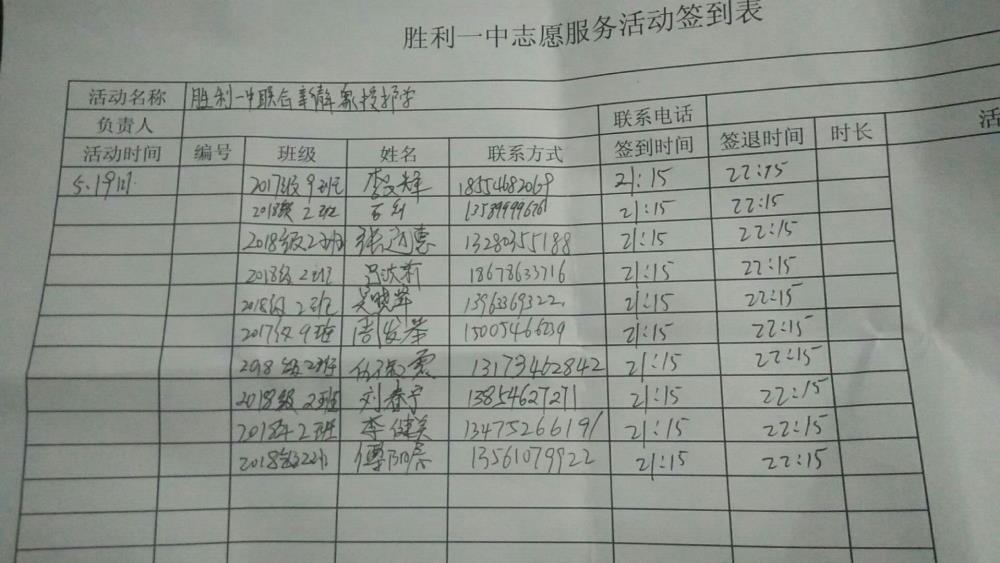 胜利一中志愿服务活动签到表
活动名称 胜利一中联合 护学
负责人 联系电话
活动时间 编号 班级 姓名 联系方式 签到时间 签退时间 时长 活
5.19日 2017级9班 18554682069 21:15 22:15
2018级2班 13589999676 21:15 22:15
2018级2班 张迎惠 13280355188 21:15 22:15
2018级2班 18678633716 21:15 22:15
2018级2班 吴晓军 13963369322 21:15 22:15
2017级9班 周俊荣 15005466239 21:15 22:15
2018级2班 13173462842 21:15 22:15
2018级2班 刘春宁 13854627271 21:15 22:15
2018年2班 李健美 13475266191 21:15 22:15
2018级2班 13561079922 21:15 22:15